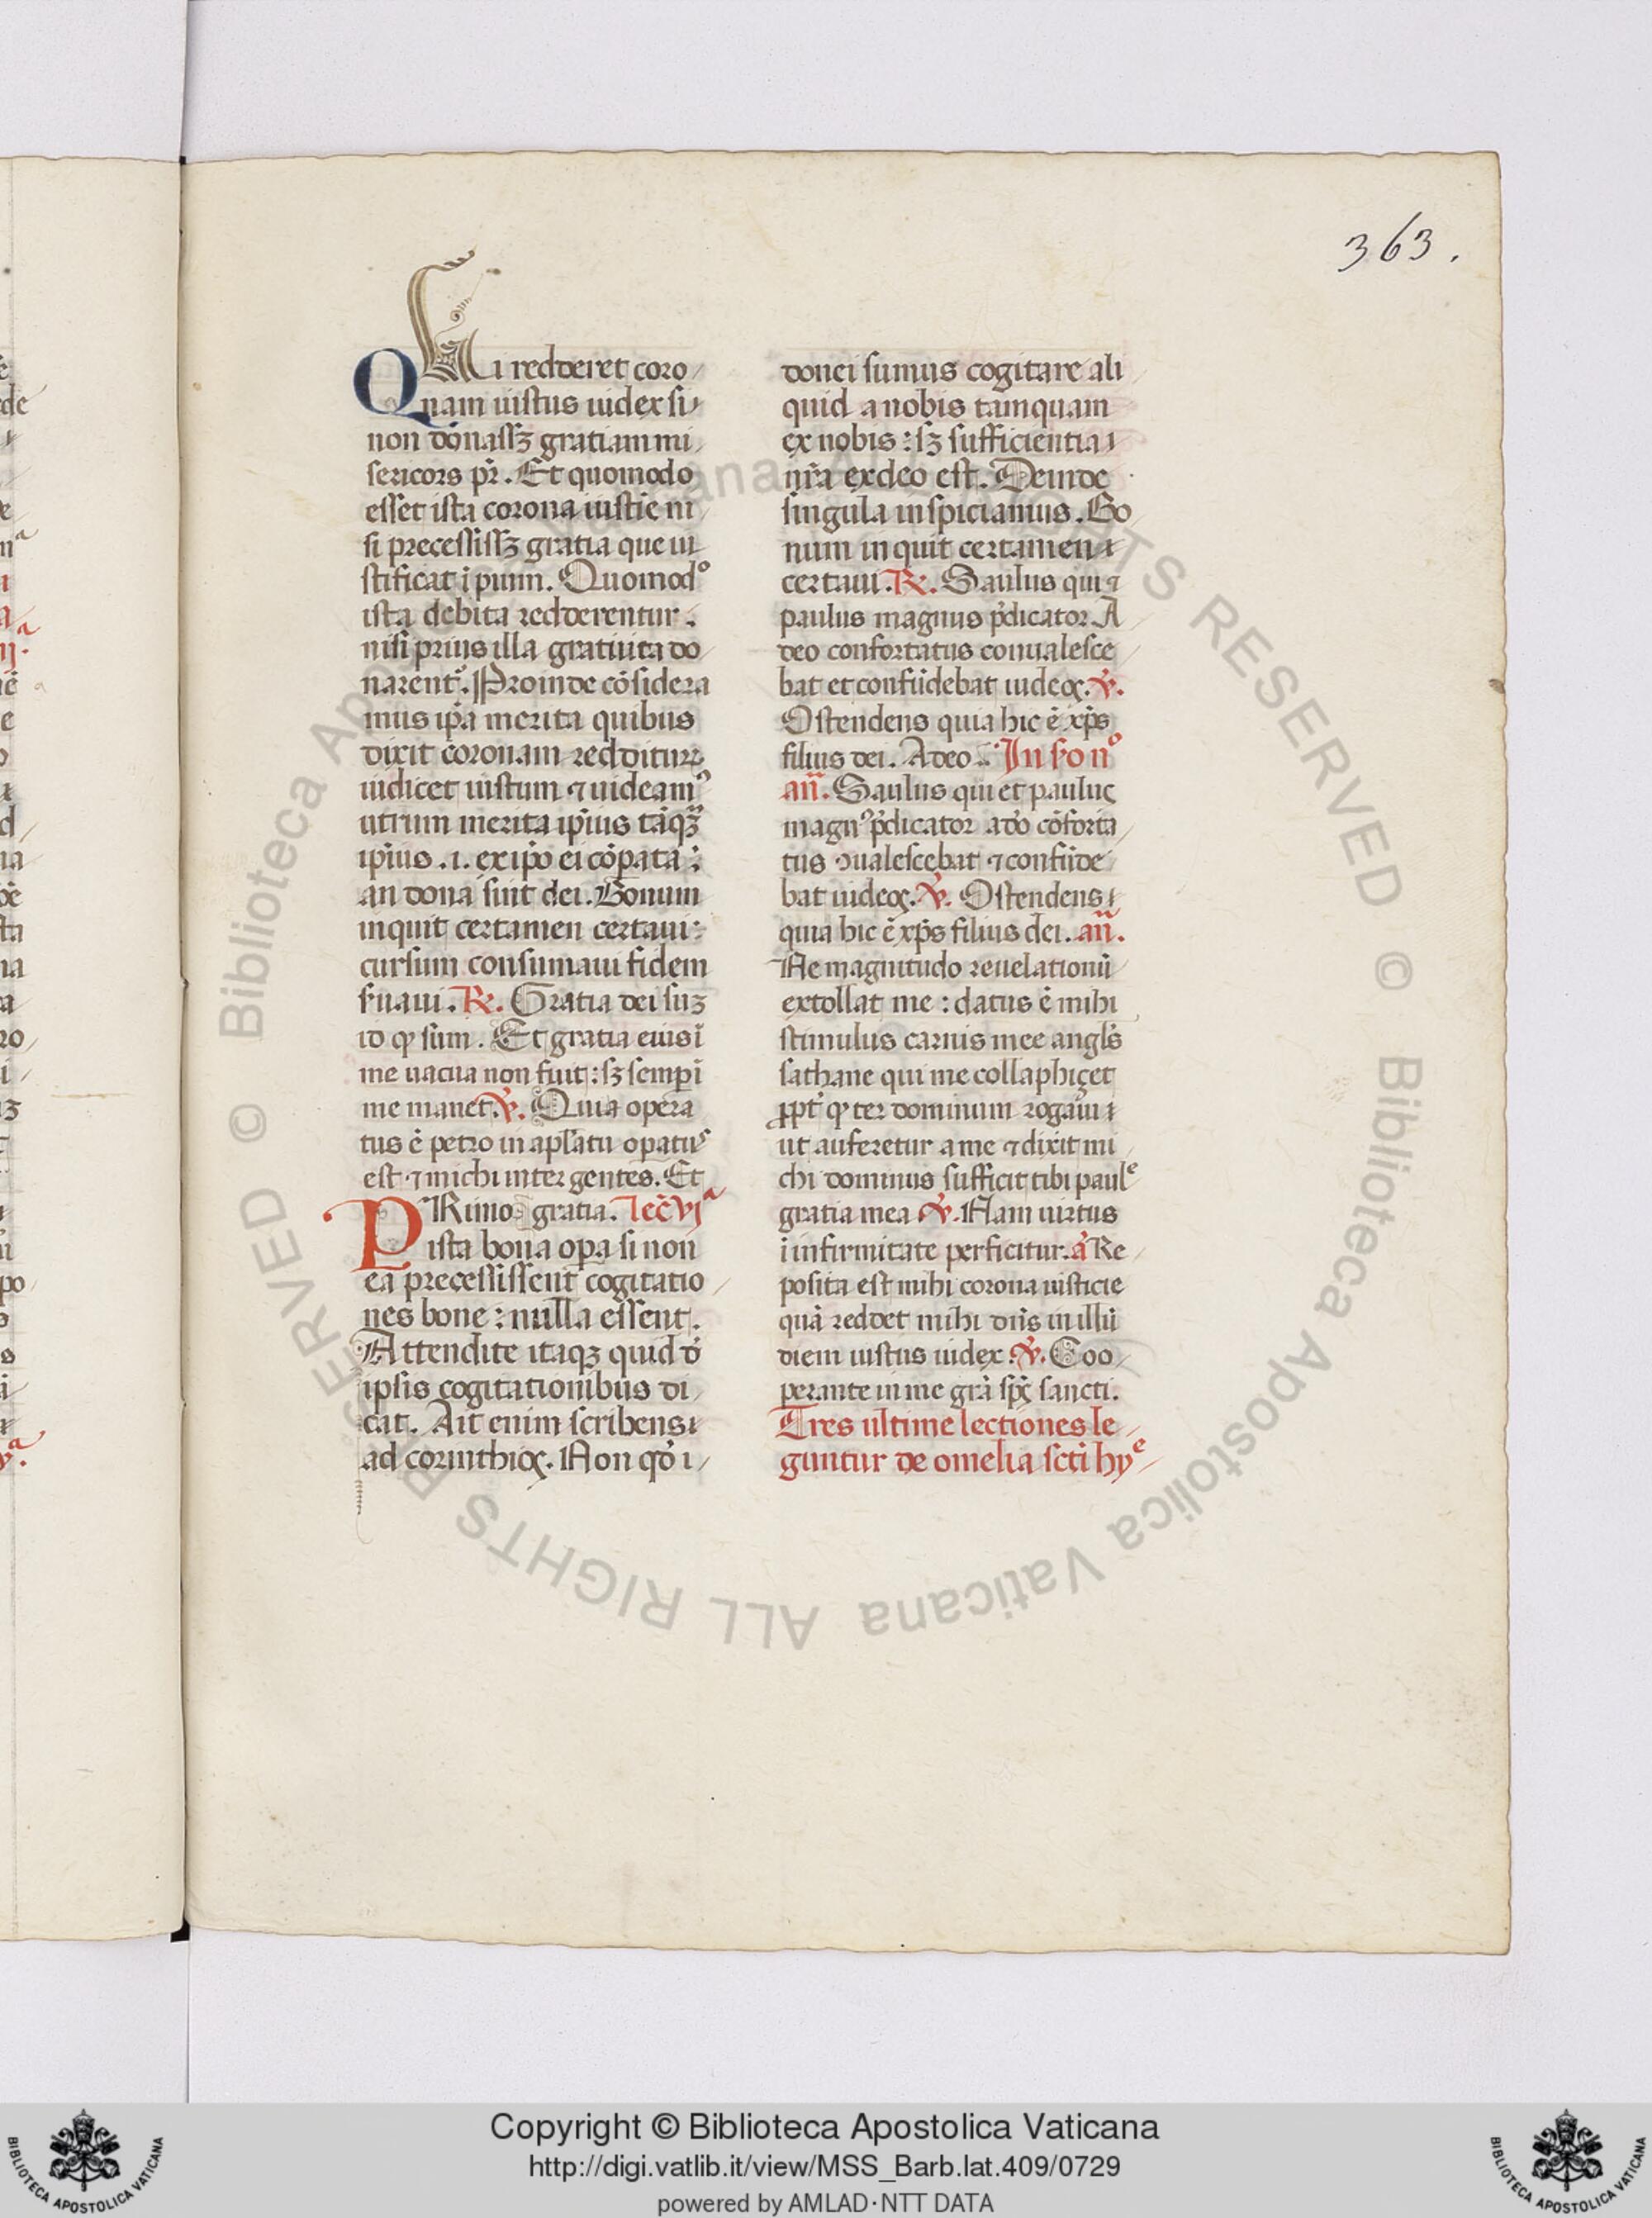 363.
QUi redderet coro
nam iustus iudex si
non donassꝫ gratiam mi
sericors pr̄. Et quomodo
esset ista corona iustiē ni
si precessissꝫ gratia que iu
stificat īpium. Quomodo
ista debita redderentur.
nisi prius illa gratuita do
narentᷣ. Proinde cōsidera
mus ip̄a merita quibus
dixit coronam redditurꝫ
iudicet iustum ⁊ uideamꝰ
utrum merita ip̄ius tāqꝫ
ip̄ius .i. ex ip̄o ei cōpata:
an dona sint dei. Bonum
inquit certamen certaui:
cursum consumaui fidem
ẜuaui. ℟. Gratia dei suꝫ
id ꝙ sum. Et gratia eius ī
me uacua non fuit: sꝫ semꝑ ī
me manet. ℣. Quia opera
tus ē petro in apl̄atu opatus
est ⁊ michi inter gentes. Et
PRimo gratia. lec̄ vjᵃ
ista bona oꝑa si non
ea precessissent cogitatio
nes bone: nulla essent.
Attendite itaqꝫ quid d̄
ipsis cogitationibus di
cat. Ait enim scribens
ad corinthios. Non qd̄ i
donei sumus cogitare ali
quid a nobis tamquam
ex nobis: sꝫ sufficientia
nr̄a ex deo est. Deinde
singula inspiciamus. Bo
num inquit certamen
certaui. ℟. Saulus qui ⁊
paulus magnus p̄dicator A
deo confortatus conualesce
bat et confūdebat iudeos. ℣.
Ostendens quia hic ē xp̄s
filius dei. Adeo. In ẜo nᵒ
an̄. Saulus qui et paulus
magnꝰ p̄dicator adō cōforta
tus ꝯualescebat ⁊ confūde
bat iudeos. ℣. Ostendens
quia hic ē xp̄s filius dei. an̄.
Ne magnitudo reuelationū
extollat me: datus ē mihi
stimulus carnis mee angl̄s
sathane qui me collaphiçet
ꝓpt̄ ꝙ ter dominum rogaui
ut auferetur a me ⁊ dixit mi
chi dominus sufficit tibi paule
gratia mea ℣. Nam uirtus
ī infirmitate perficitur. ā Re
posita est mihi corona iusticie
quā reddet mihi dn̄s in illū
diem iustus iudex. ℣. Coo
perante in me grā spс̄ sancti.
Tres ultime lectiones le
guntur de omelia scti hyᵉ
Copyright © Biblioteca Apostolica Vaticana
http://digi.vatlib.it/view/MSS_Barb.lat.409/0729
powered by AMLAD·NTT DATA
BIBLIOTECA APOSTOLICA VATICANA
BIBLIOTECA APOSTOLICA VATICANA
© Biblioteca Apostolica Vaticana ALL RIGHTS RESERVED
© Biblioteca Apostolica Vaticana ALL RIGHTS RESERVED